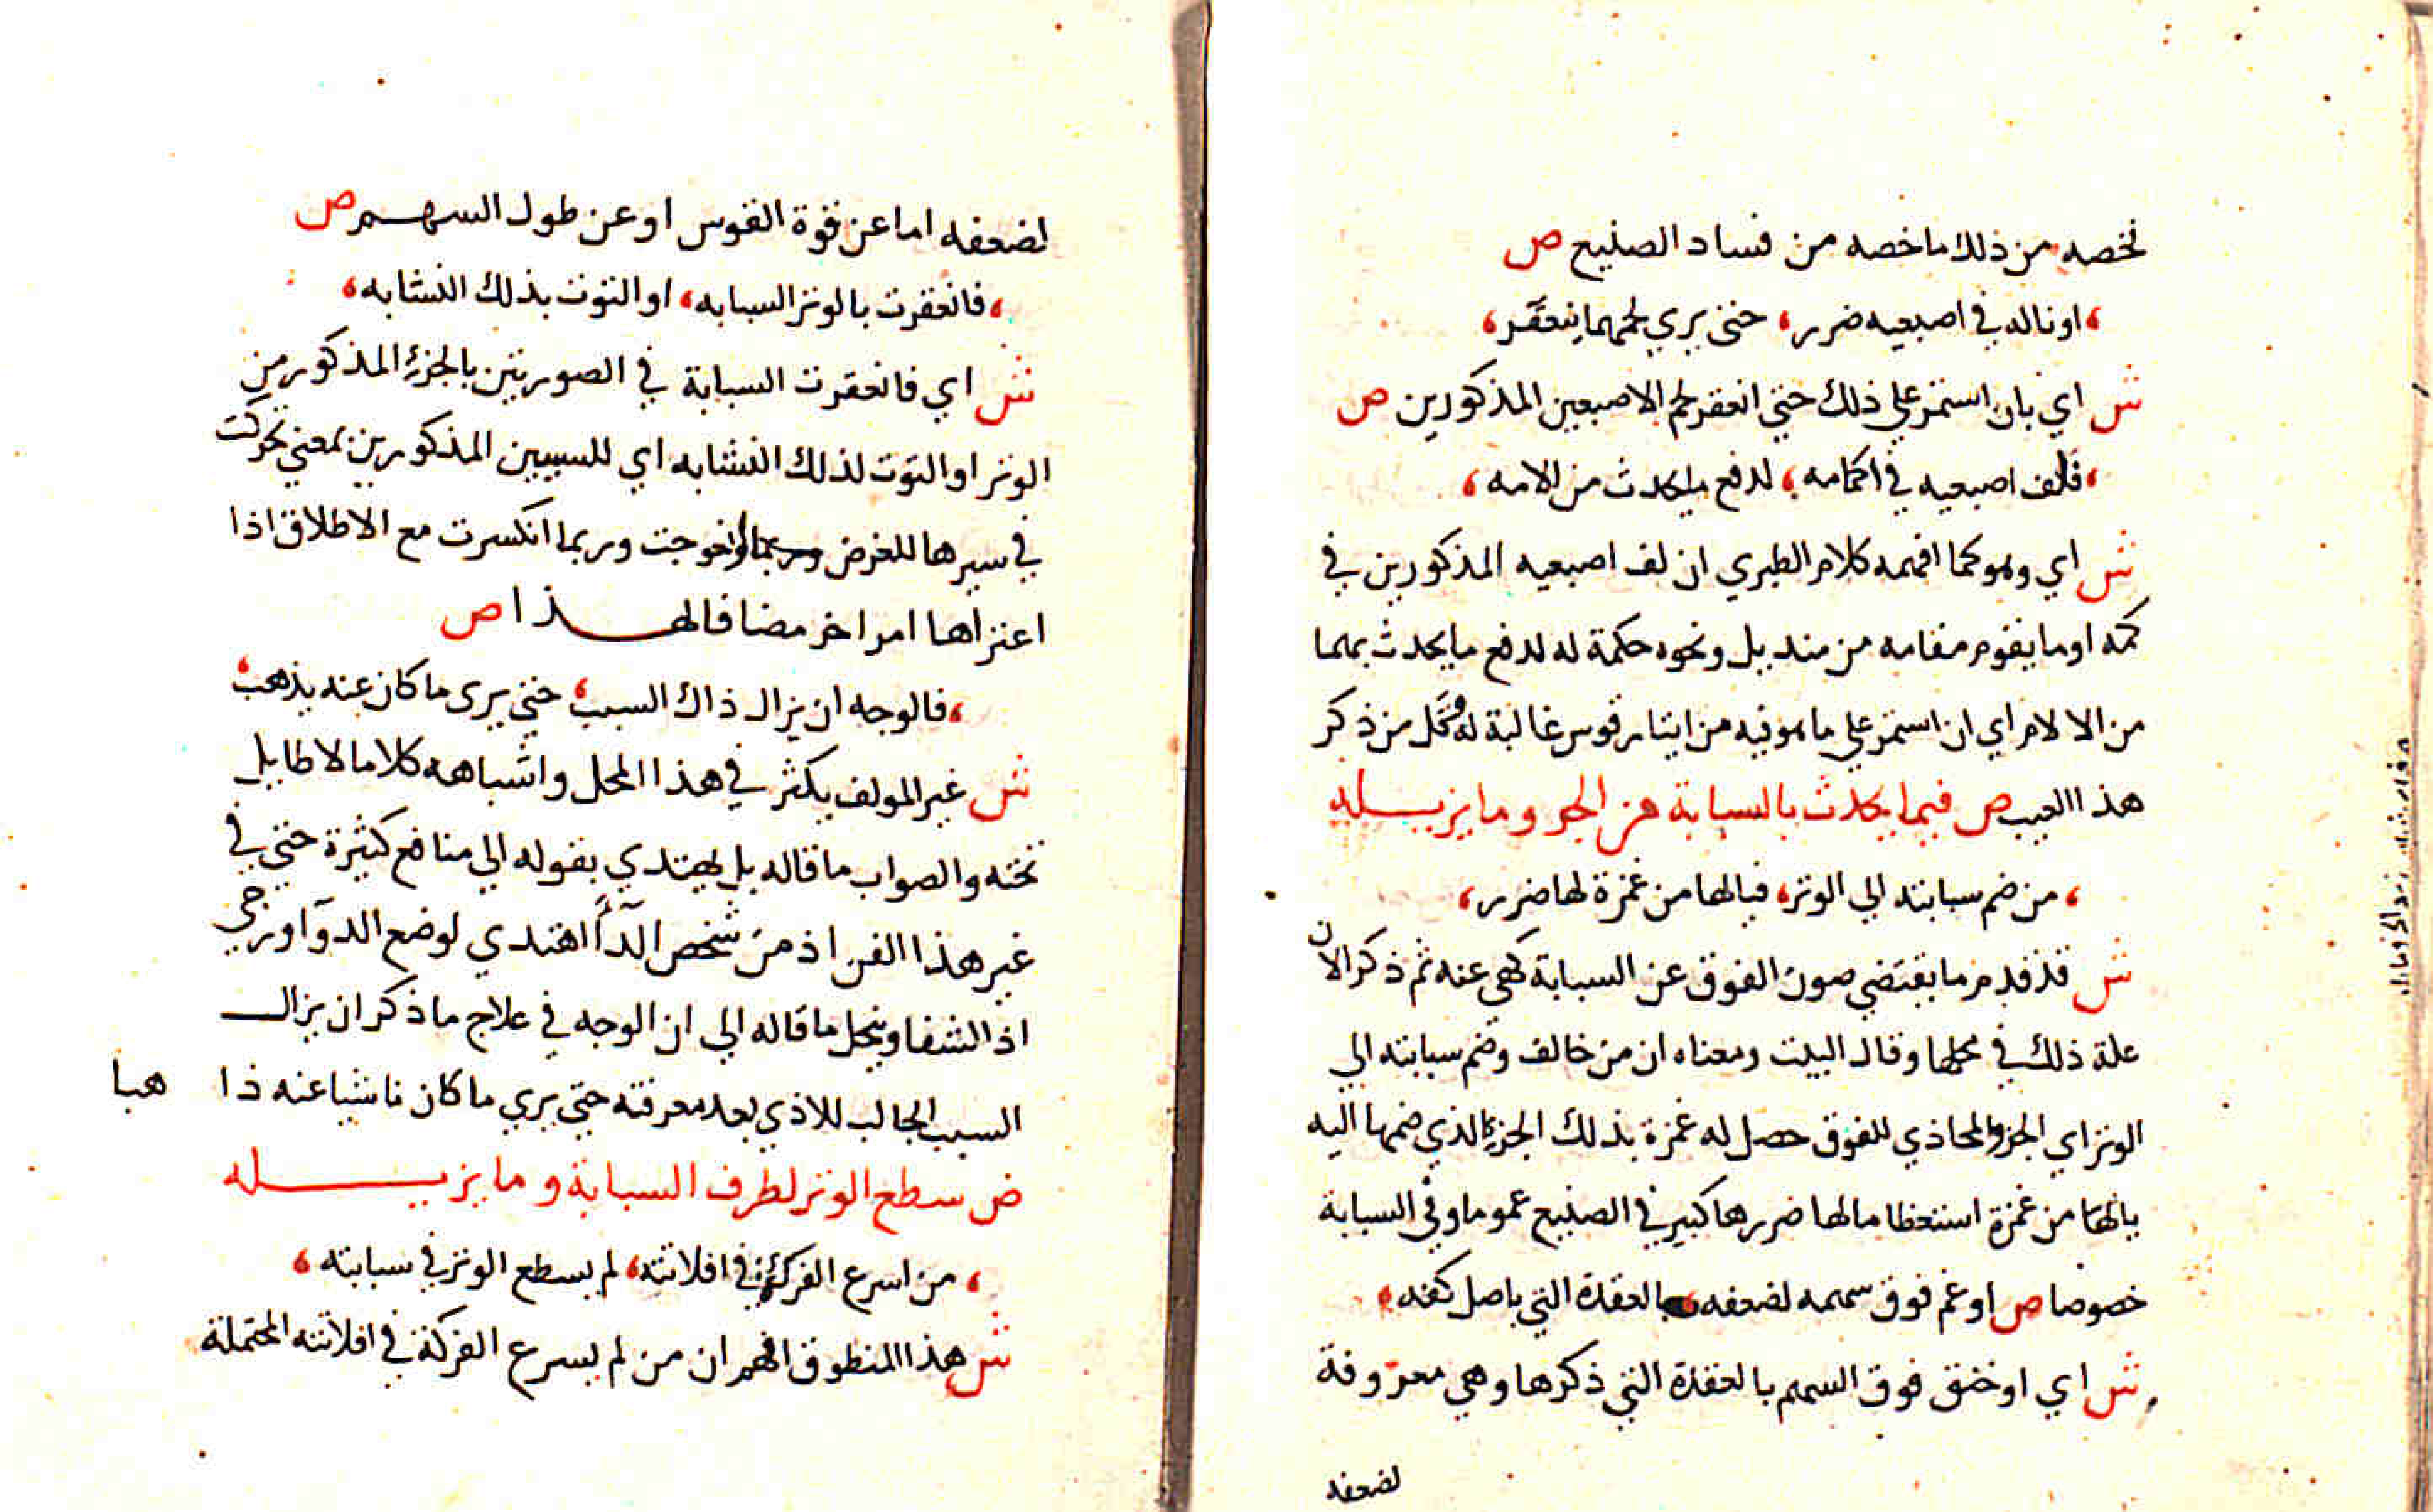 نخصه من ذلك ما خصه من فساد الصنيع ص
، او ناله في اصبعيه ضرر ، حتى يري لحمهما ينعقر ،
ش اي بان استمر علي ذلك حتي انعقر لحم الاصبعين المذكورين ص
، فلف اصبعيه في اكمامه ، لدفع ما يحدث من الامه ،
ش اي وهو كما افهمه كلام الطبري ان لف اصبعيه المذكورين في
كمه او ما يقوم مقامه من منديل ونحوه حكمة له لدفع ما يحدث بهما
من الالام اي ان استمر علي ما هو فيه من ايتار قوس غالبة له ومحل من ذكر
هذا العيب ص فيما يحدث بالسبابة من الجر وما يزيله
، من ضم سبابته الي الوتر ، فيالها من غمزة لها ضرر ،
ش قد قدم ما يقتضي صون الفوق عن السبابة كهي عنه ثم ذكر الان
علة ذلك في محلها وقال البيت ومعناه ان من خالف وضم سبابته الي
الوتر اي الجزو المحاذي للفوق حصل له غمزة بذلك الجزء الذي ضمها اليه
يالها من غمزة استعظاما لها ضررها كبير في الصنيع عموما وفي السبابة
خصوصا ص او غم فوق سهمه لضعفه ، بالعقدة التي باصل كفه ،
ش اي او خنق فوق السهم بالعقدة التي ذكرها وهي معروفة
لضعفه
لضعفه اما عن قوة القوس او عن طول السهم ص
، فانعقرت بالوتر السبابه ، او التوت بذلك النشابه ،
ش اي فانعقرت السبابة في الصورتين بالجزء المذكور من
الوتر او التوت لذلك النشابه اي للسببين المذكورين بمعني تحركت
في سيرها للغرض وربما انكسرت مع الاطلاق اذا
اعتراها امر اخر مضافا لهذا ص
، فالوجه ان يزال ذاك السبب ، حتي يرى ما كان عنه يذهب ،
ش غير المولف يكثر في هذا المحل واشباهه كلاما لا طايل
تحته والصواب ما قاله بل يهتدي بقوله الي منافع كثيرة حتي في
غير هذا الفن اذ من شخص الدآء اهتدي لوضع الدوآ ورجي
اذ الشفا وينحل ما قاله الي ان الوجه في علاج ما ذكر ان يزال
السبب الجالب للاذي بعد معرفته حتي يري ما كان ناشيا عنه ذا هبا
ص سطع الوتر لطرف السبابة وما يزيله
، من اسرع الفركة في افلاتته ، لم يسطع الوتر في سبابته ،
ش هذا المنطوق افهم ان من لم يسرع الفركة في افلاتته المحتملة